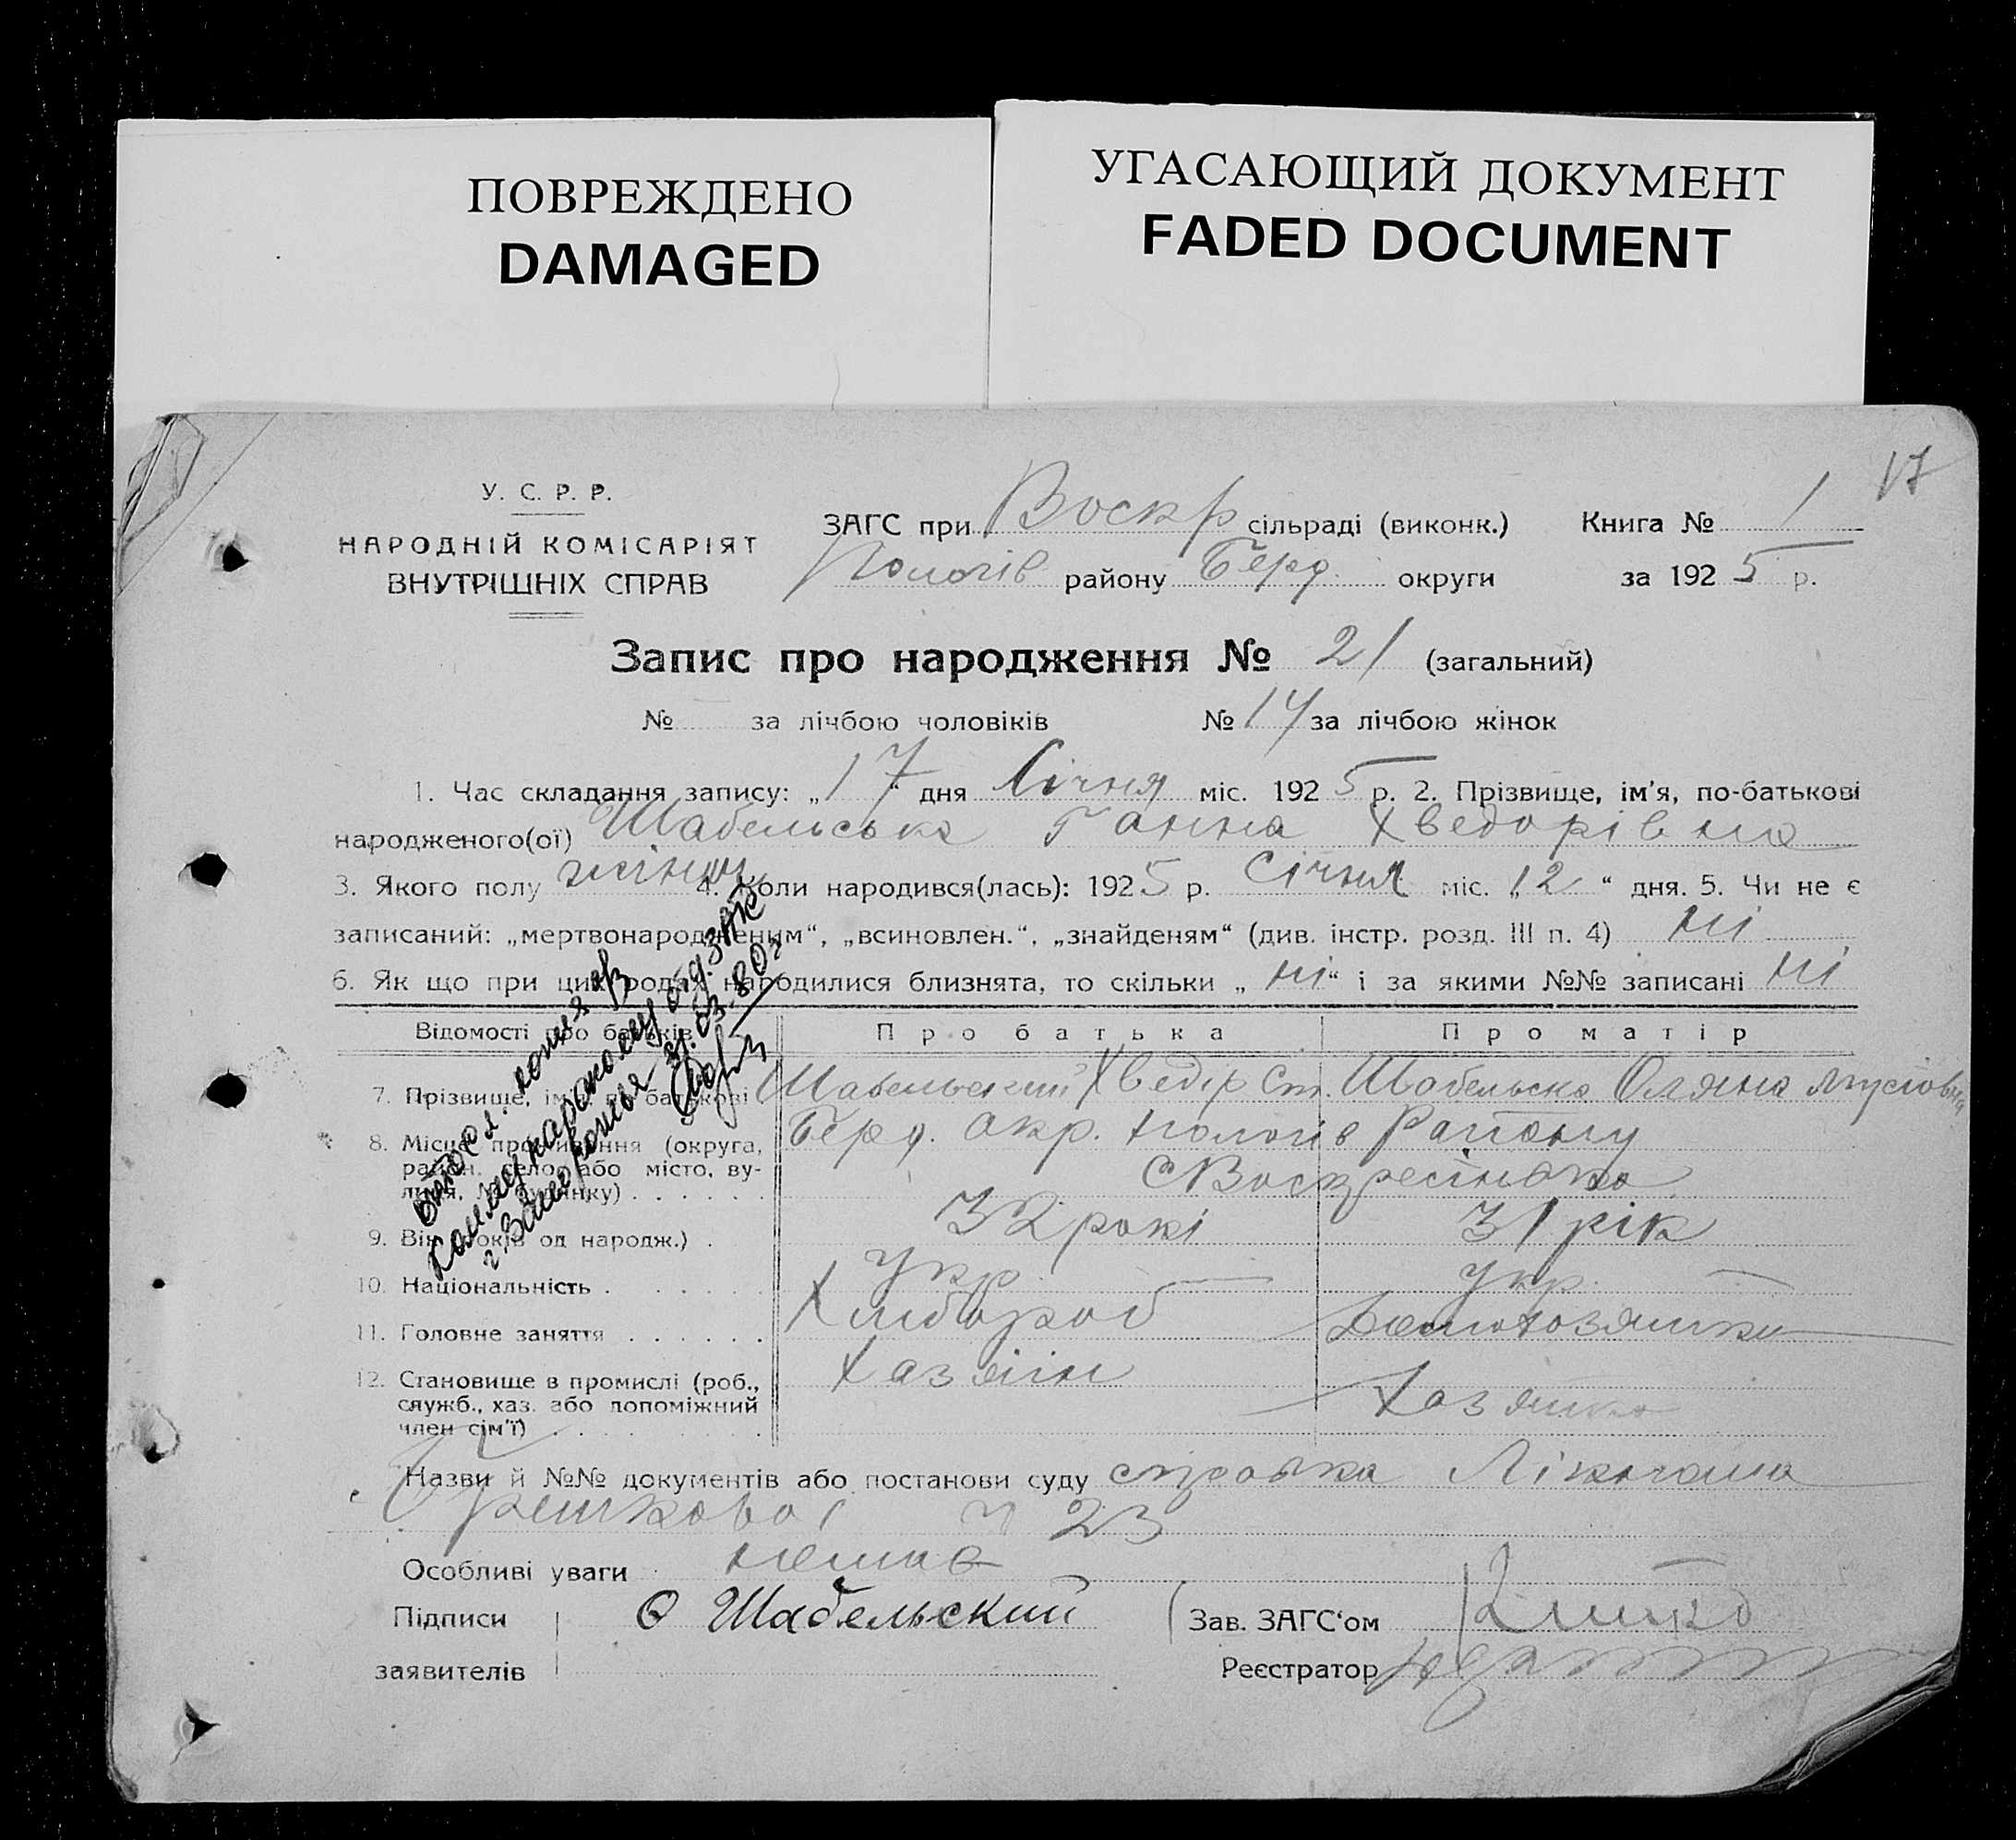 ПОВРЕЖДЕНО
DAMAGED
УГАСАЮЩИЙ ДОКУМЕНТ
FADED DOCUMENT
17
У. С. Р. Р.
НАРОДНІЙ КОМІСАРІЯТ
ВНУТРІШНІХ СПРАВ
ЗАГС при Воскр сільраді (виконк.) Книга № 1
Пологів району Берд. округи за 1925 р.
Запис про народження № 21 (загальний)
№ за лічбою чоловіків № 14 за лічбою жінок
1. Час складання запису: „17“ дня Січня міс. 1925 р. 2. Прізвище, ім'я, по-батькові
народженого(ої) Шабельська Ганна Хведорівна
3. Якого полу жіноч 4. Коли народився(лась): 1925 р. Січня міс. „12“ дня. 5. Чи не є
записаний: „мертвонародженим“, „всиновлен.“, „знайденям“ (див. інстр. розд. III п. 4) ні
6. Як що при цих родах народилися близнята, то скільки „ні“ і за якими №№ записані ні
Відомості про батьків Про батька Про матір
7. Прізвище, ім'я, по батькові Шабельський Хведір Ст. Шабельска Оляна
8. Місце проживання (округа, Берд. окр. Пологів Району
район, село або місто, ву-
лиця, № будинку)
9. Вік (років од народж.) 32 рокі 31 рік
10. Національність Укр. Укр.
11. Головне заняття Хлібороб Домохозяйка
12. Становище в промислі (роб., Хазяїн Хазяйка
служб., хаз. або допоміжний
член сім'ї)
Назви й №№ документів або постанови суду справка
23
Особливі уваги немає
Підписи Ф Шабельский Зав. ЗАГС'ом
заявителів Реєстратор